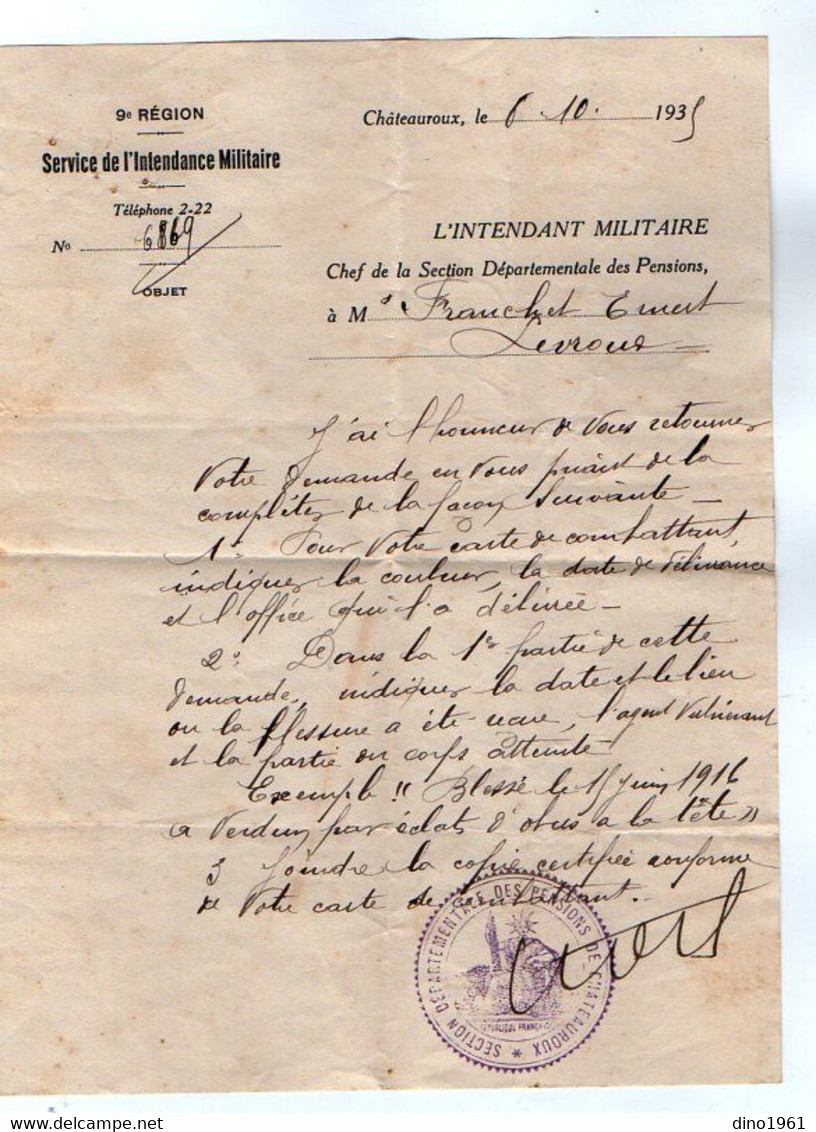 9e RÉGION
Service de l'Intendance Militaire
Téléphone 2-22
No 6869
OBJET
Châteauroux, le 6 10. 1935
L'INTENDANT MILITAIRE
Chef de la Section Départementale des Pensions,
à Mr Franchet Ernest
Levroux
J'ai l'honneur de vous retourner
votre demande en vous priant de la
compléter de la façon suivante —
1o Pour votre carte de combattant,
indiquer la couleur, la date de délivrance
et l'office qui l'a délivrée —
2o Dans la 1re partie de cette
demande, indiquer la date et le lieu
ou la blessure a été reçue, l'agent vulnérant
et la partie du corps atteinte
Exemple "Blessé le 15 juin 1916
a Verdun par éclats d'obus a la tête"
3 Joindre la copie certifiée conforme
de votre carte de combattant.
SECTION DÉPARTEMENTALE DES PENSIONS DE CHATEAUROUX *
RÉPUBLIQUE FRANÇAISE
dino1961